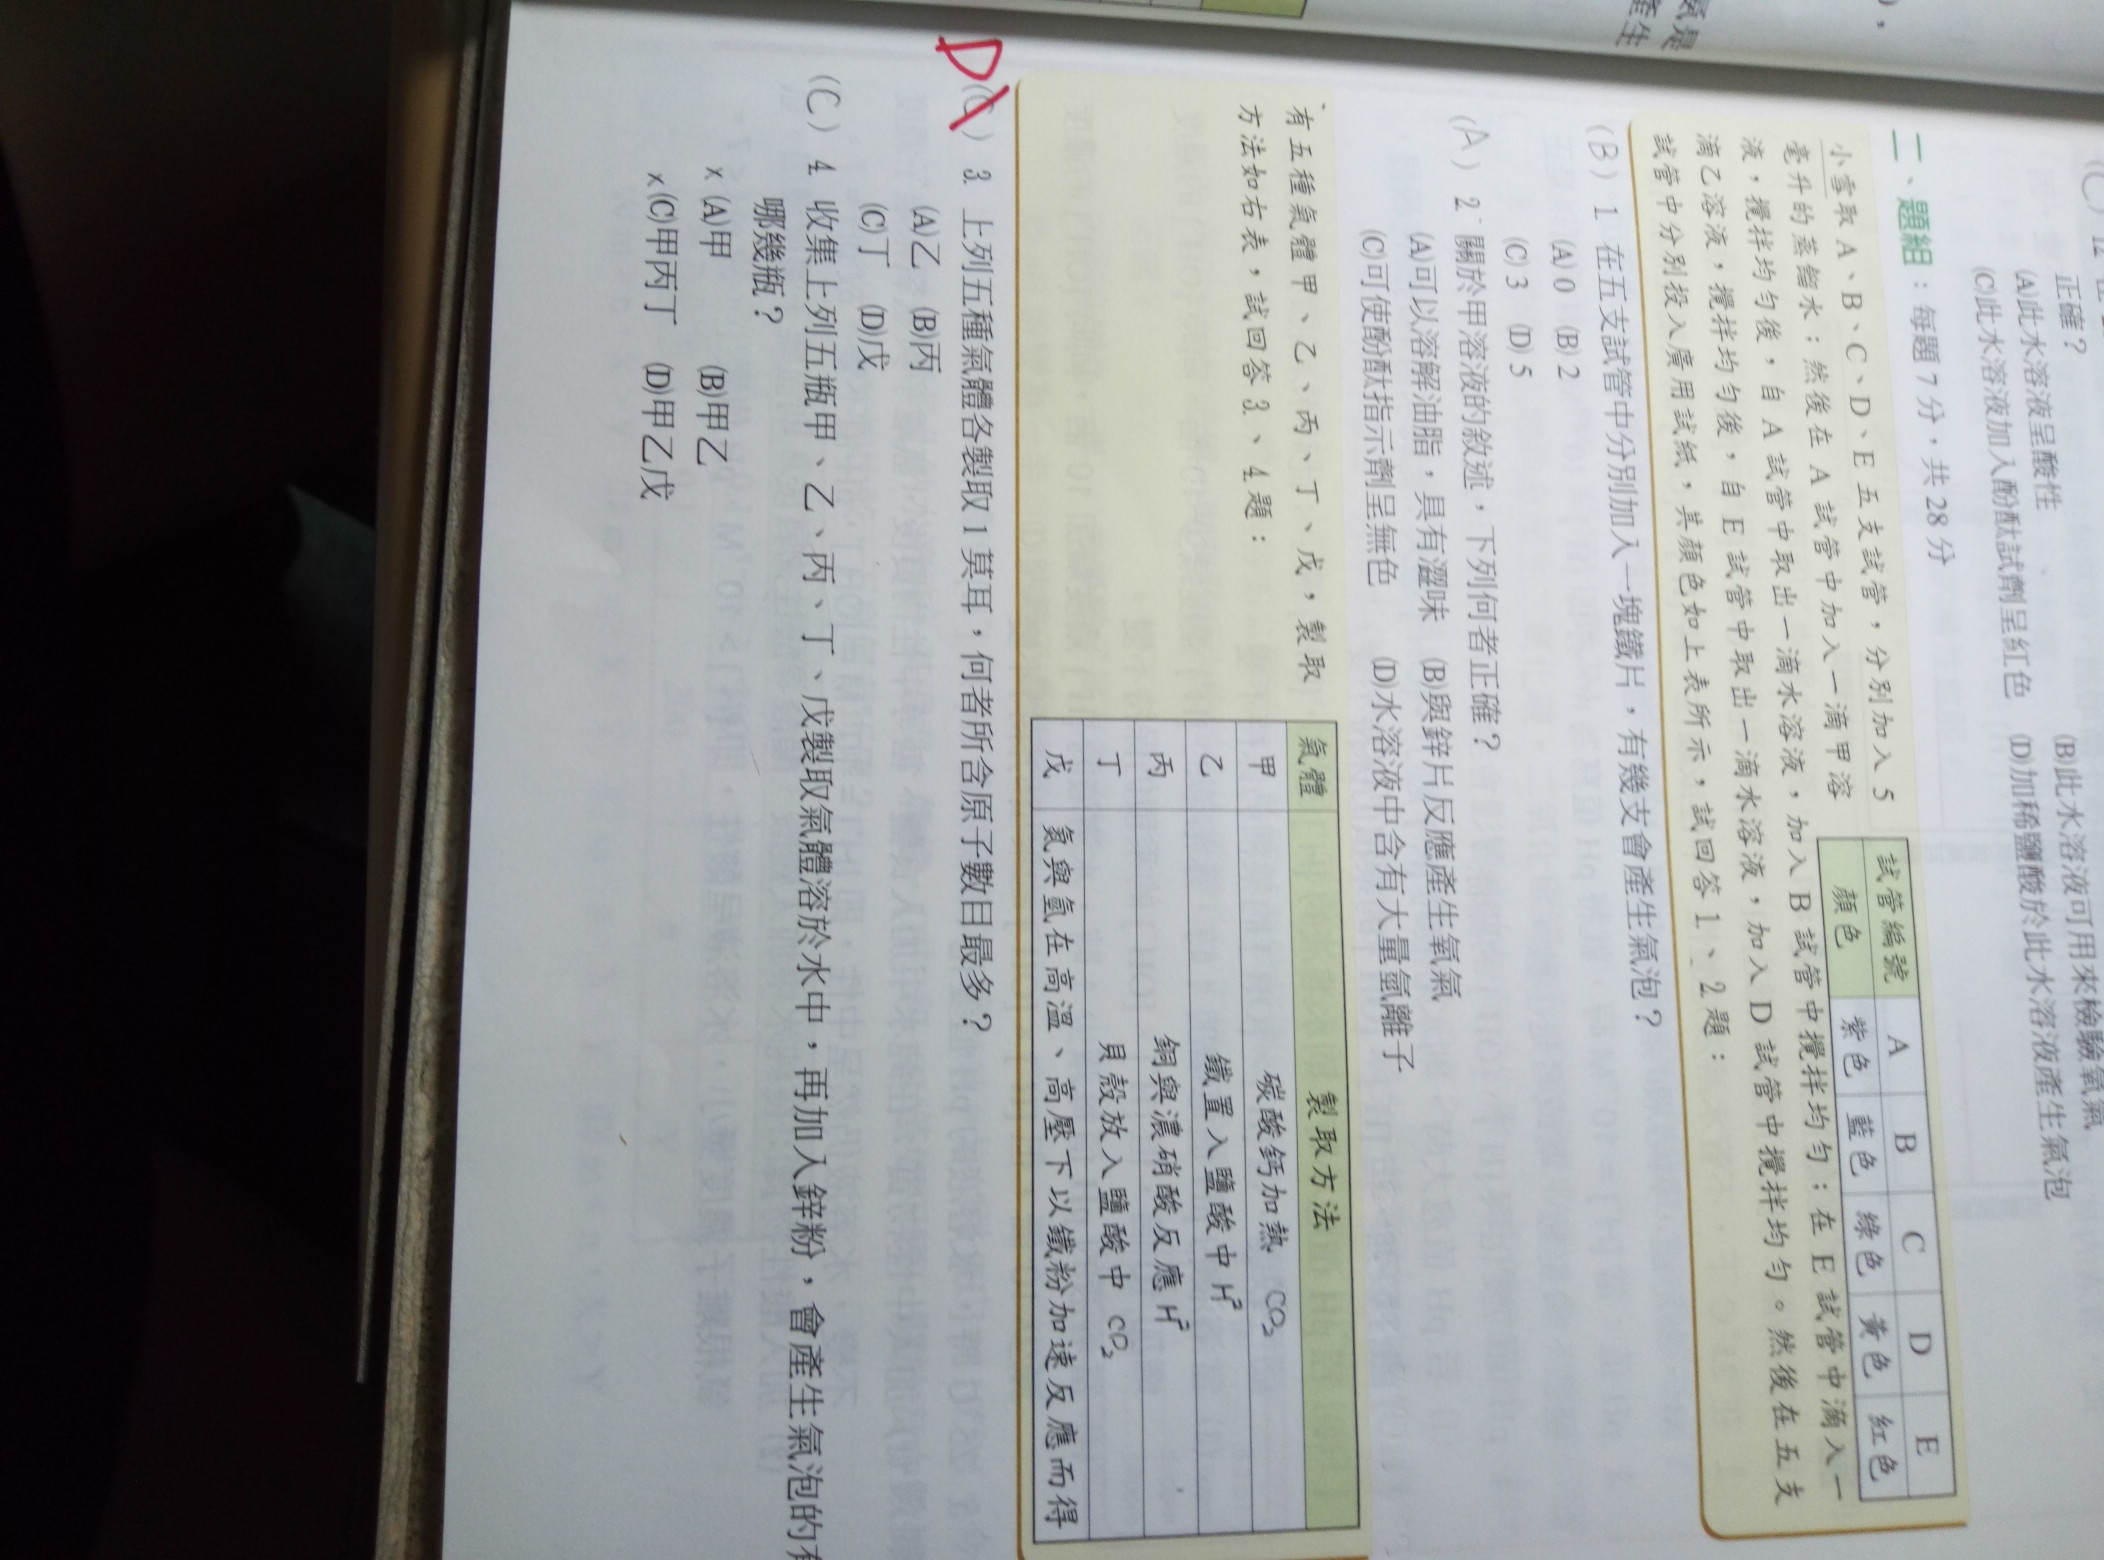 氣是
產生
正確？
(A)此水溶液呈酸性
(B)此水溶液可用來檢驗氧氣
(C)此水溶液加入酚酞試劑呈紅色 (D)加稀鹽酸於此水溶液產生氣泡
二、題組：每題 7 分，共 28 分
小雪取 A、B、C、D、E 五支試管，分別加入 5
毫升的蒸餾水；然後在 A 試管中加入一滴甲溶
液，攪拌均勻後，自 A 試管中取出一滴水溶液，加入 B 試管中攪拌均勻；在 E 試管中滴入一
滴乙溶液，攪拌均勻後，自 E 試管中取出一滴水溶液，加入 D 試管中攪拌均勻。然後在五支
試管中分別投入廣用試紙，其顏色如上表所示，試回答 1、2 題：
試管編號 A B C D E
顏色 紫色 藍色 綠色 黃色 紅色
(B) 1. 在五支試管中分別加入一塊鐵片，有幾支會產生氣泡？
(A) 0 (B) 2
(C) 3 (D) 5
(A) 2. 關於甲溶液的敘述，下列何者正確？
(A)可以溶解油脂，具有澀味 (B)與鋅片反應產生氧氣
(C)可使酚酞指示劑呈無色 (D)水溶液中含有大量氫離子
有五種氣體甲、乙、丙、丁、戊，製取
方法如右表，試回答 3.、4.題：
氣體 製取方法
甲 碳酸鈣加熱 CO₂
乙 鐵置入鹽酸中 H²
丙 銅與濃硝酸反應 H²
丁 貝殼放入鹽酸中 CO₂
戊 氮與氫在高溫、高壓下以鐵粉加速反應而得
D(C) 3. 上列五種氣體各製取 1 莫耳，何者所含原子數目最多？
(A)乙 (B)丙
(C)丁 (D)戊
(C) 4. 收集上列五瓶甲、乙、丙、丁、戊製取氣體溶於水中，再加入鋅粉，會產生氣泡的有
哪幾瓶？
x (A)甲 (B)甲乙
x (C)甲丙丁 (D)甲乙戊